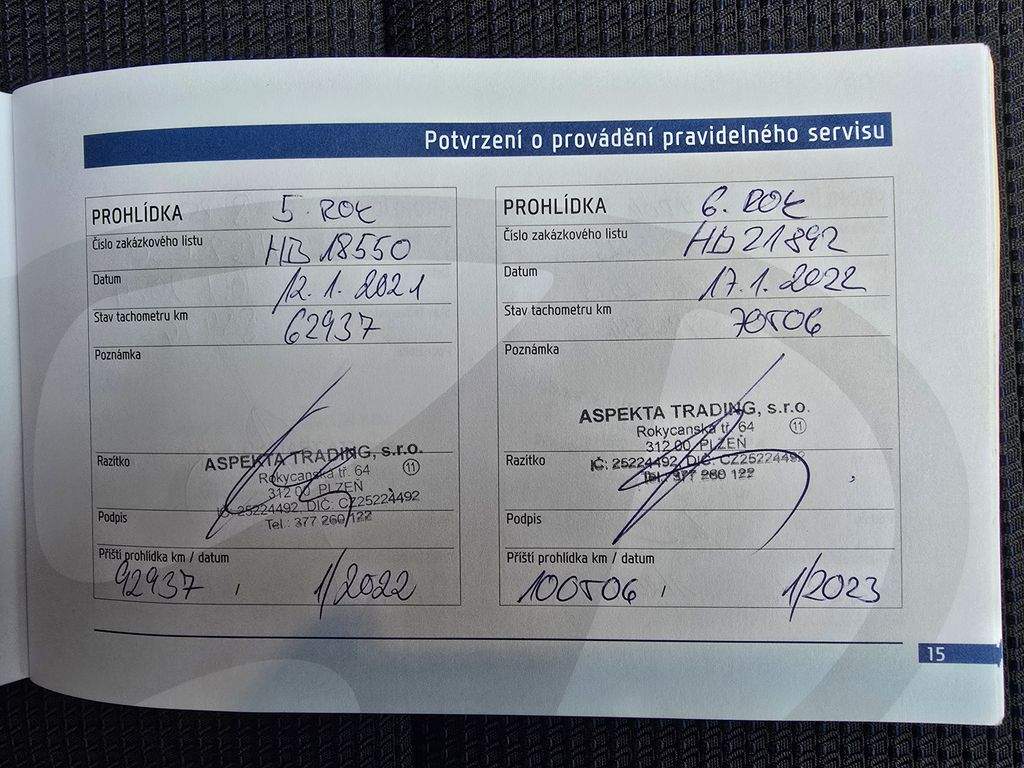 Potvrzení o provádění pravidelného servisu
PROHLÍDKA 5. ROK
Číslo zakázkového listu HB 18550
Datum 12.1.2021
Stav tachometru km 62937
Poznámka
Razítko
ASPEKTA TRADING, s.r.o.
Rokycanská tř. 64 11
312 00 PLZEŇ
IČ: 25224492, DIČ: CZ25224492
Tel.: 377 260 122
Podpis
Příští prohlídka km / datum
92937, 1/2022
PROHLÍDKA 6. ROK
Číslo zakázkového listu HB 21892
Datum 17.1.2022
Stav tachometru km 70506
Poznámka
ASPEKTA TRADING, s.r.o.
Rokycanská tř. 64 11
312 00 PLZEŇ
Razítko
IČ: 25224492, DIČ: CZ25224492
Tel.: 377 260 122
Podpis
Příští prohlídka km / datum
100506, 1/2023
15